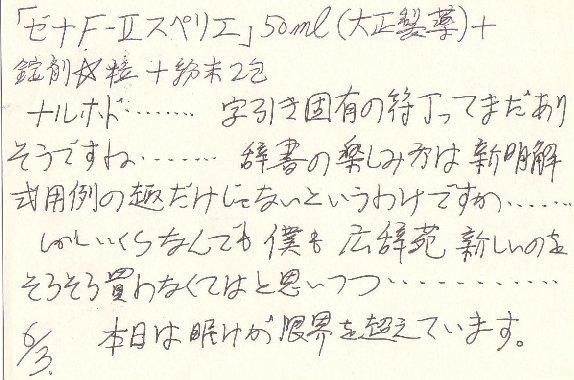 「ゼナF-Ⅱスペリエ」50ml(大正製薬)+
錠剤 粒+粉末2包
ナルホド........ 字引き固有の符丁ってまだあり
そうですね........ 辞書の楽しみ方は新明解
式用例の趣だけじゃないというわけですか......
しかしいくらなんでも僕も広辞苑新しいのを
そろそろ買わなくてはと思いつつ............
6/3. 本日は眠けが限界を超えています。